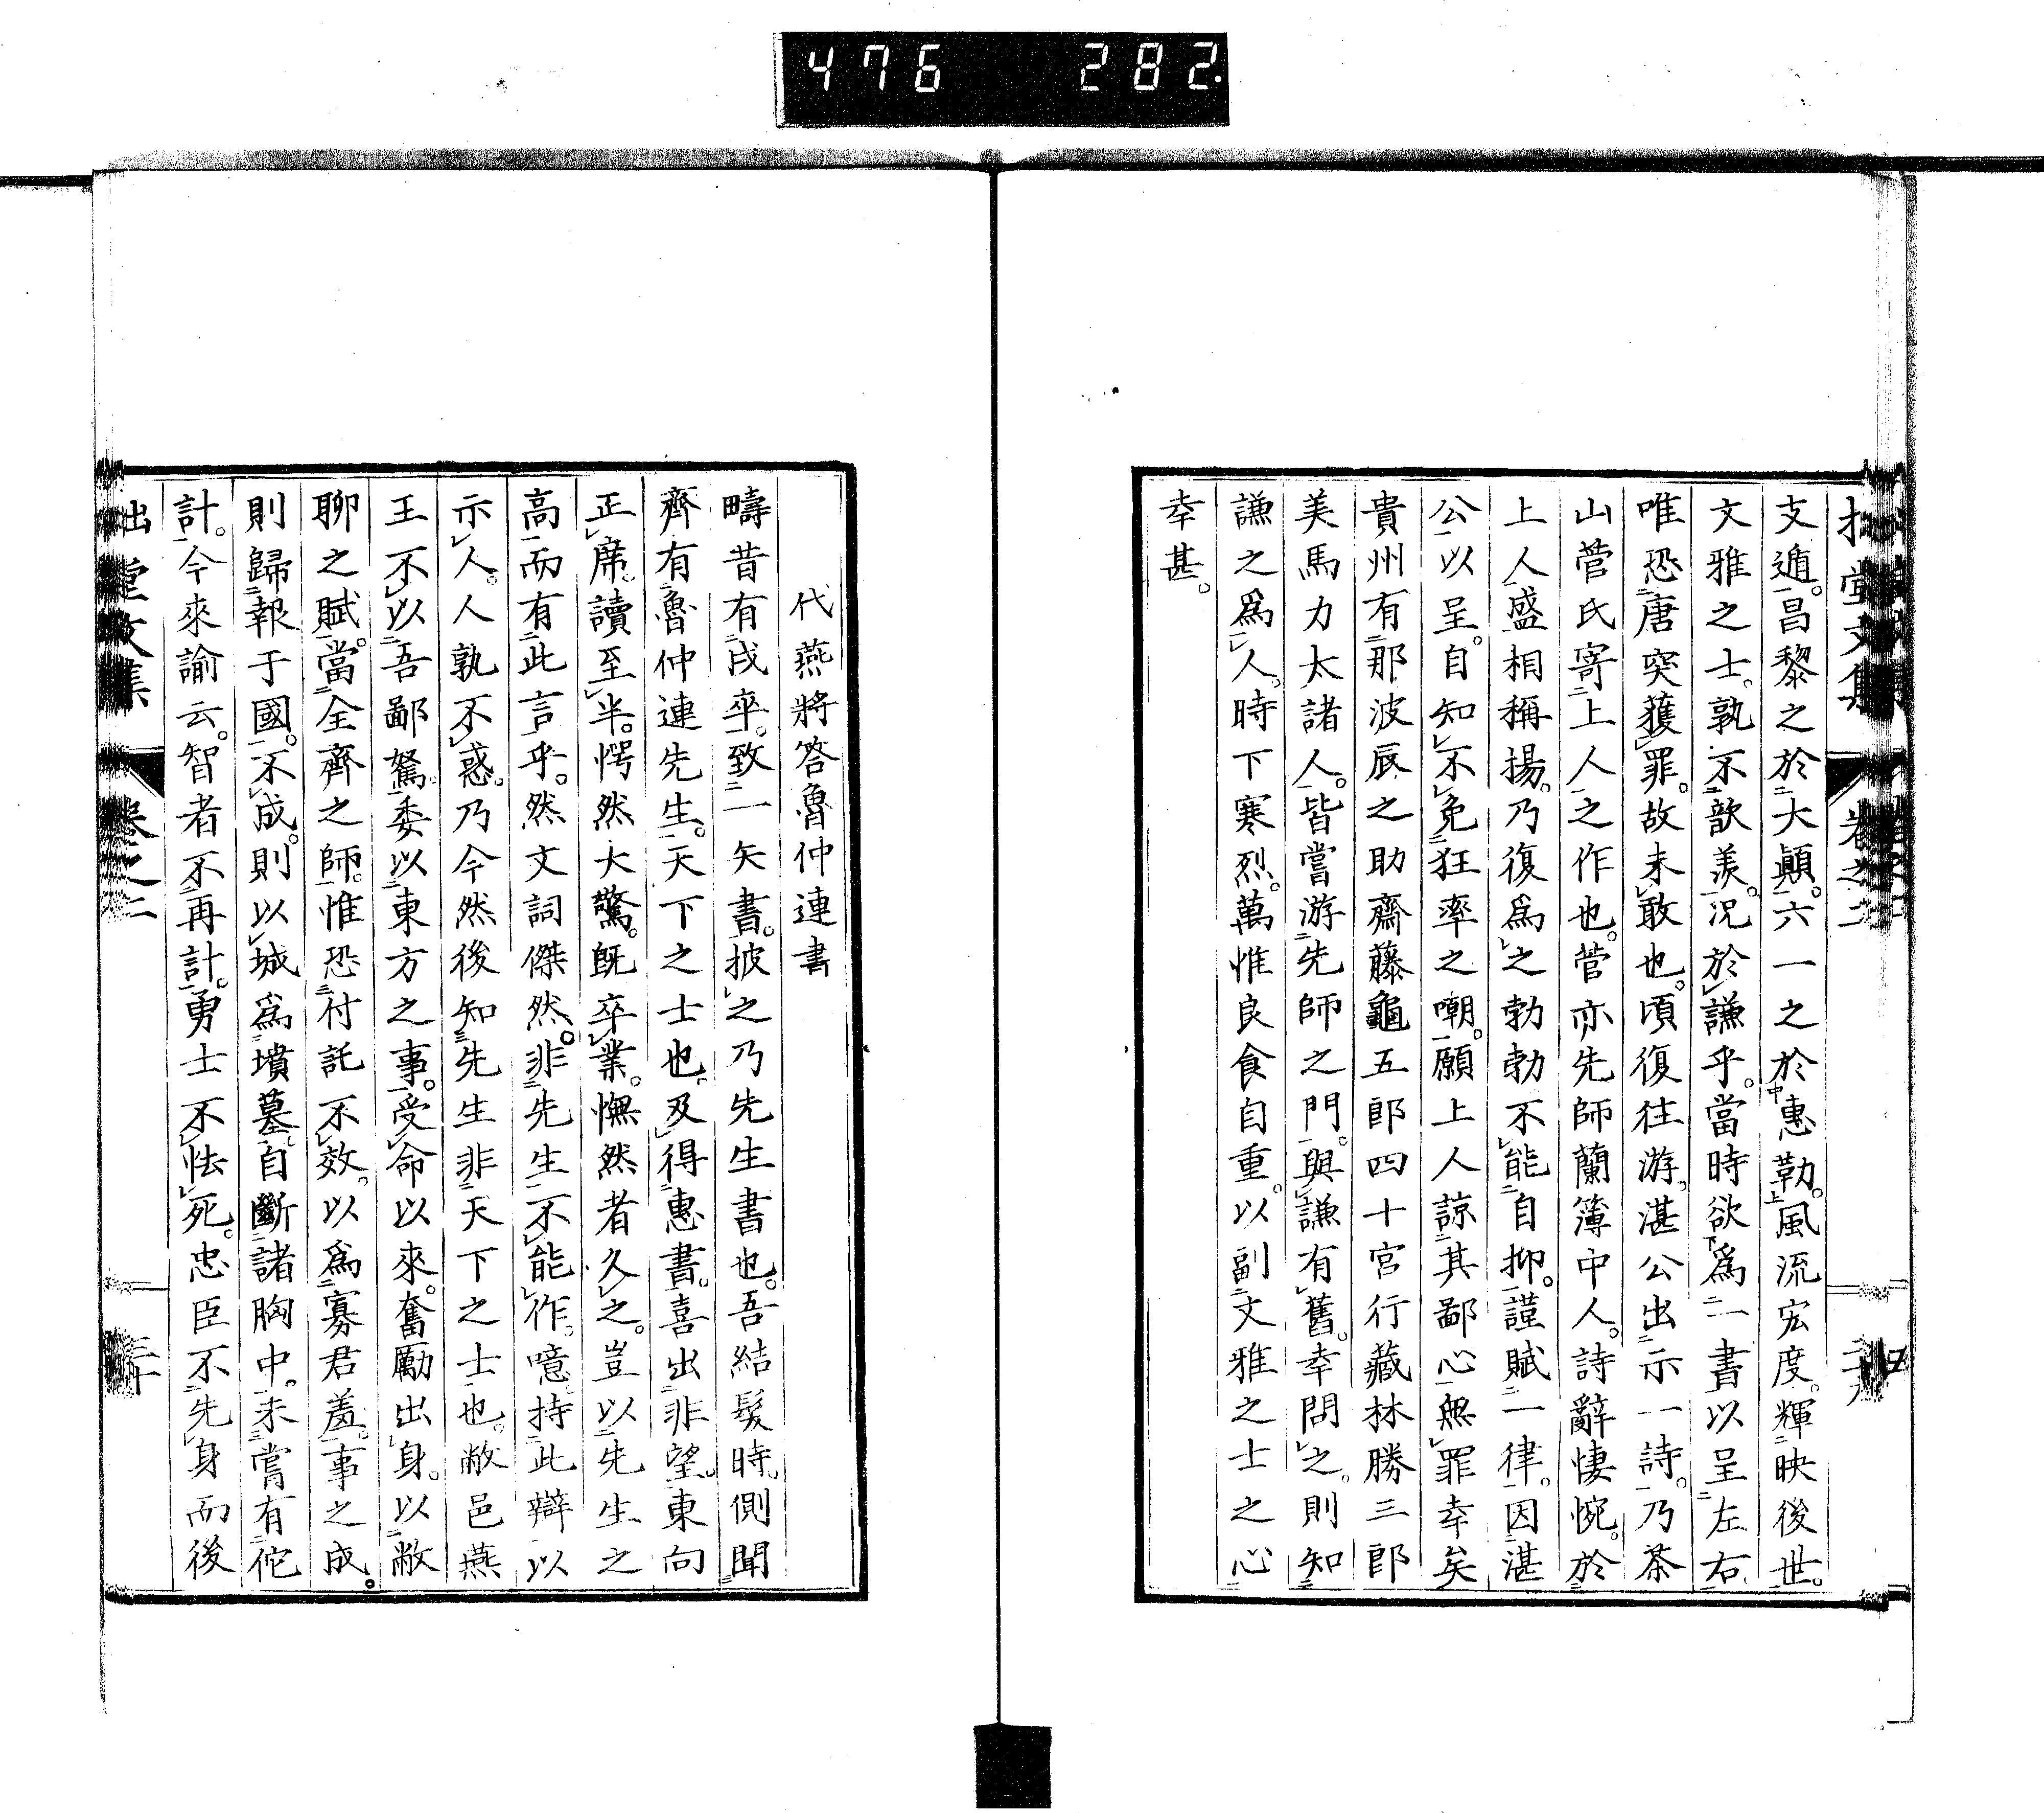 476 282
拙堂文集 卷之二 二十九
支遁。昌黎之於大顚。六一之於惠勒。風流宏度。輝映後世。
文雅之士。孰不歆羨。況於謙乎。當時欲爲一書以呈左右。
唯恐唐突獲罪。故未敢也。頃復往游。湛公出示一詩。乃茶
山菅氏寄上人之作也。菅亦先師蘭簿中人。詩辭悽惋。於
上人盛相稱揚。乃復爲之勃勃不能自抑。謹賦一律。因湛
公以呈。自知不免狂率之嘲。願上人諒其鄙心無罪幸矣
貴州有那波辰之助齋藤龜五郎四十宮行藏林勝三郎
美馬力太諸人。皆嘗游先師之門。與謙有舊。幸問之。則知
謙之爲人。時下寒烈。萬惟良食自重。以副文雅之士之心
幸甚。
代燕將答魯仲連書
疇昔有戍卒。致一矢書。披之乃先生書也。吾結髮時。側聞
齊有魯仲連先生。天下之士也。及得惠書。喜出非望。東向
正席。讀至半。愕然大驚。既卒業。憮然者久之。豈以先生之
高而有此言乎。然文詞傑然。非先生不能作。噫持此辯以
示人。人孰不惑。乃今然後知先生非天下之士也。敝邑燕
王不以吾鄙駑。委以東方之事。受命以來。奮勵出身。以敝
聊之賦。當全齊之師。惟恐付託不效。以爲寡君羞。事之成。
則歸報于國。不成。則以城爲墳墓。自斷諸胸中。未嘗有佗
計。今來諭云。智者不再計。勇士不怯死。忠臣不先身而後
拙堂文集 卷之二 三十